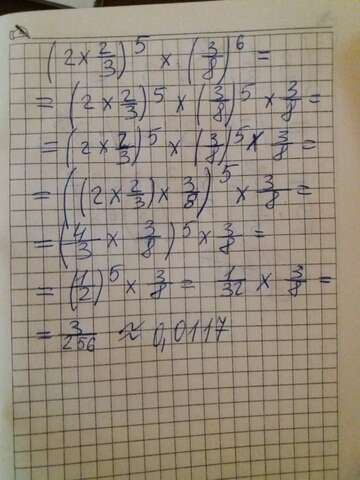 (2 × 2/3)^5 × (3/8)^6 =
= (2 × 2/3)^5 × (3/8)^5 × 3/8 =
= (2 × 2/3)^5 × (3/8)^5 × 3/8 =
= ((2 × 2/3) × 3/8)^5 × 3/8 =
= (4/3 × 3/8)^5 × 3/8 =
= (1/2)^5 × 3/8 = 1/32 × 3/8 =
= 3/256 ≈ 0,0117